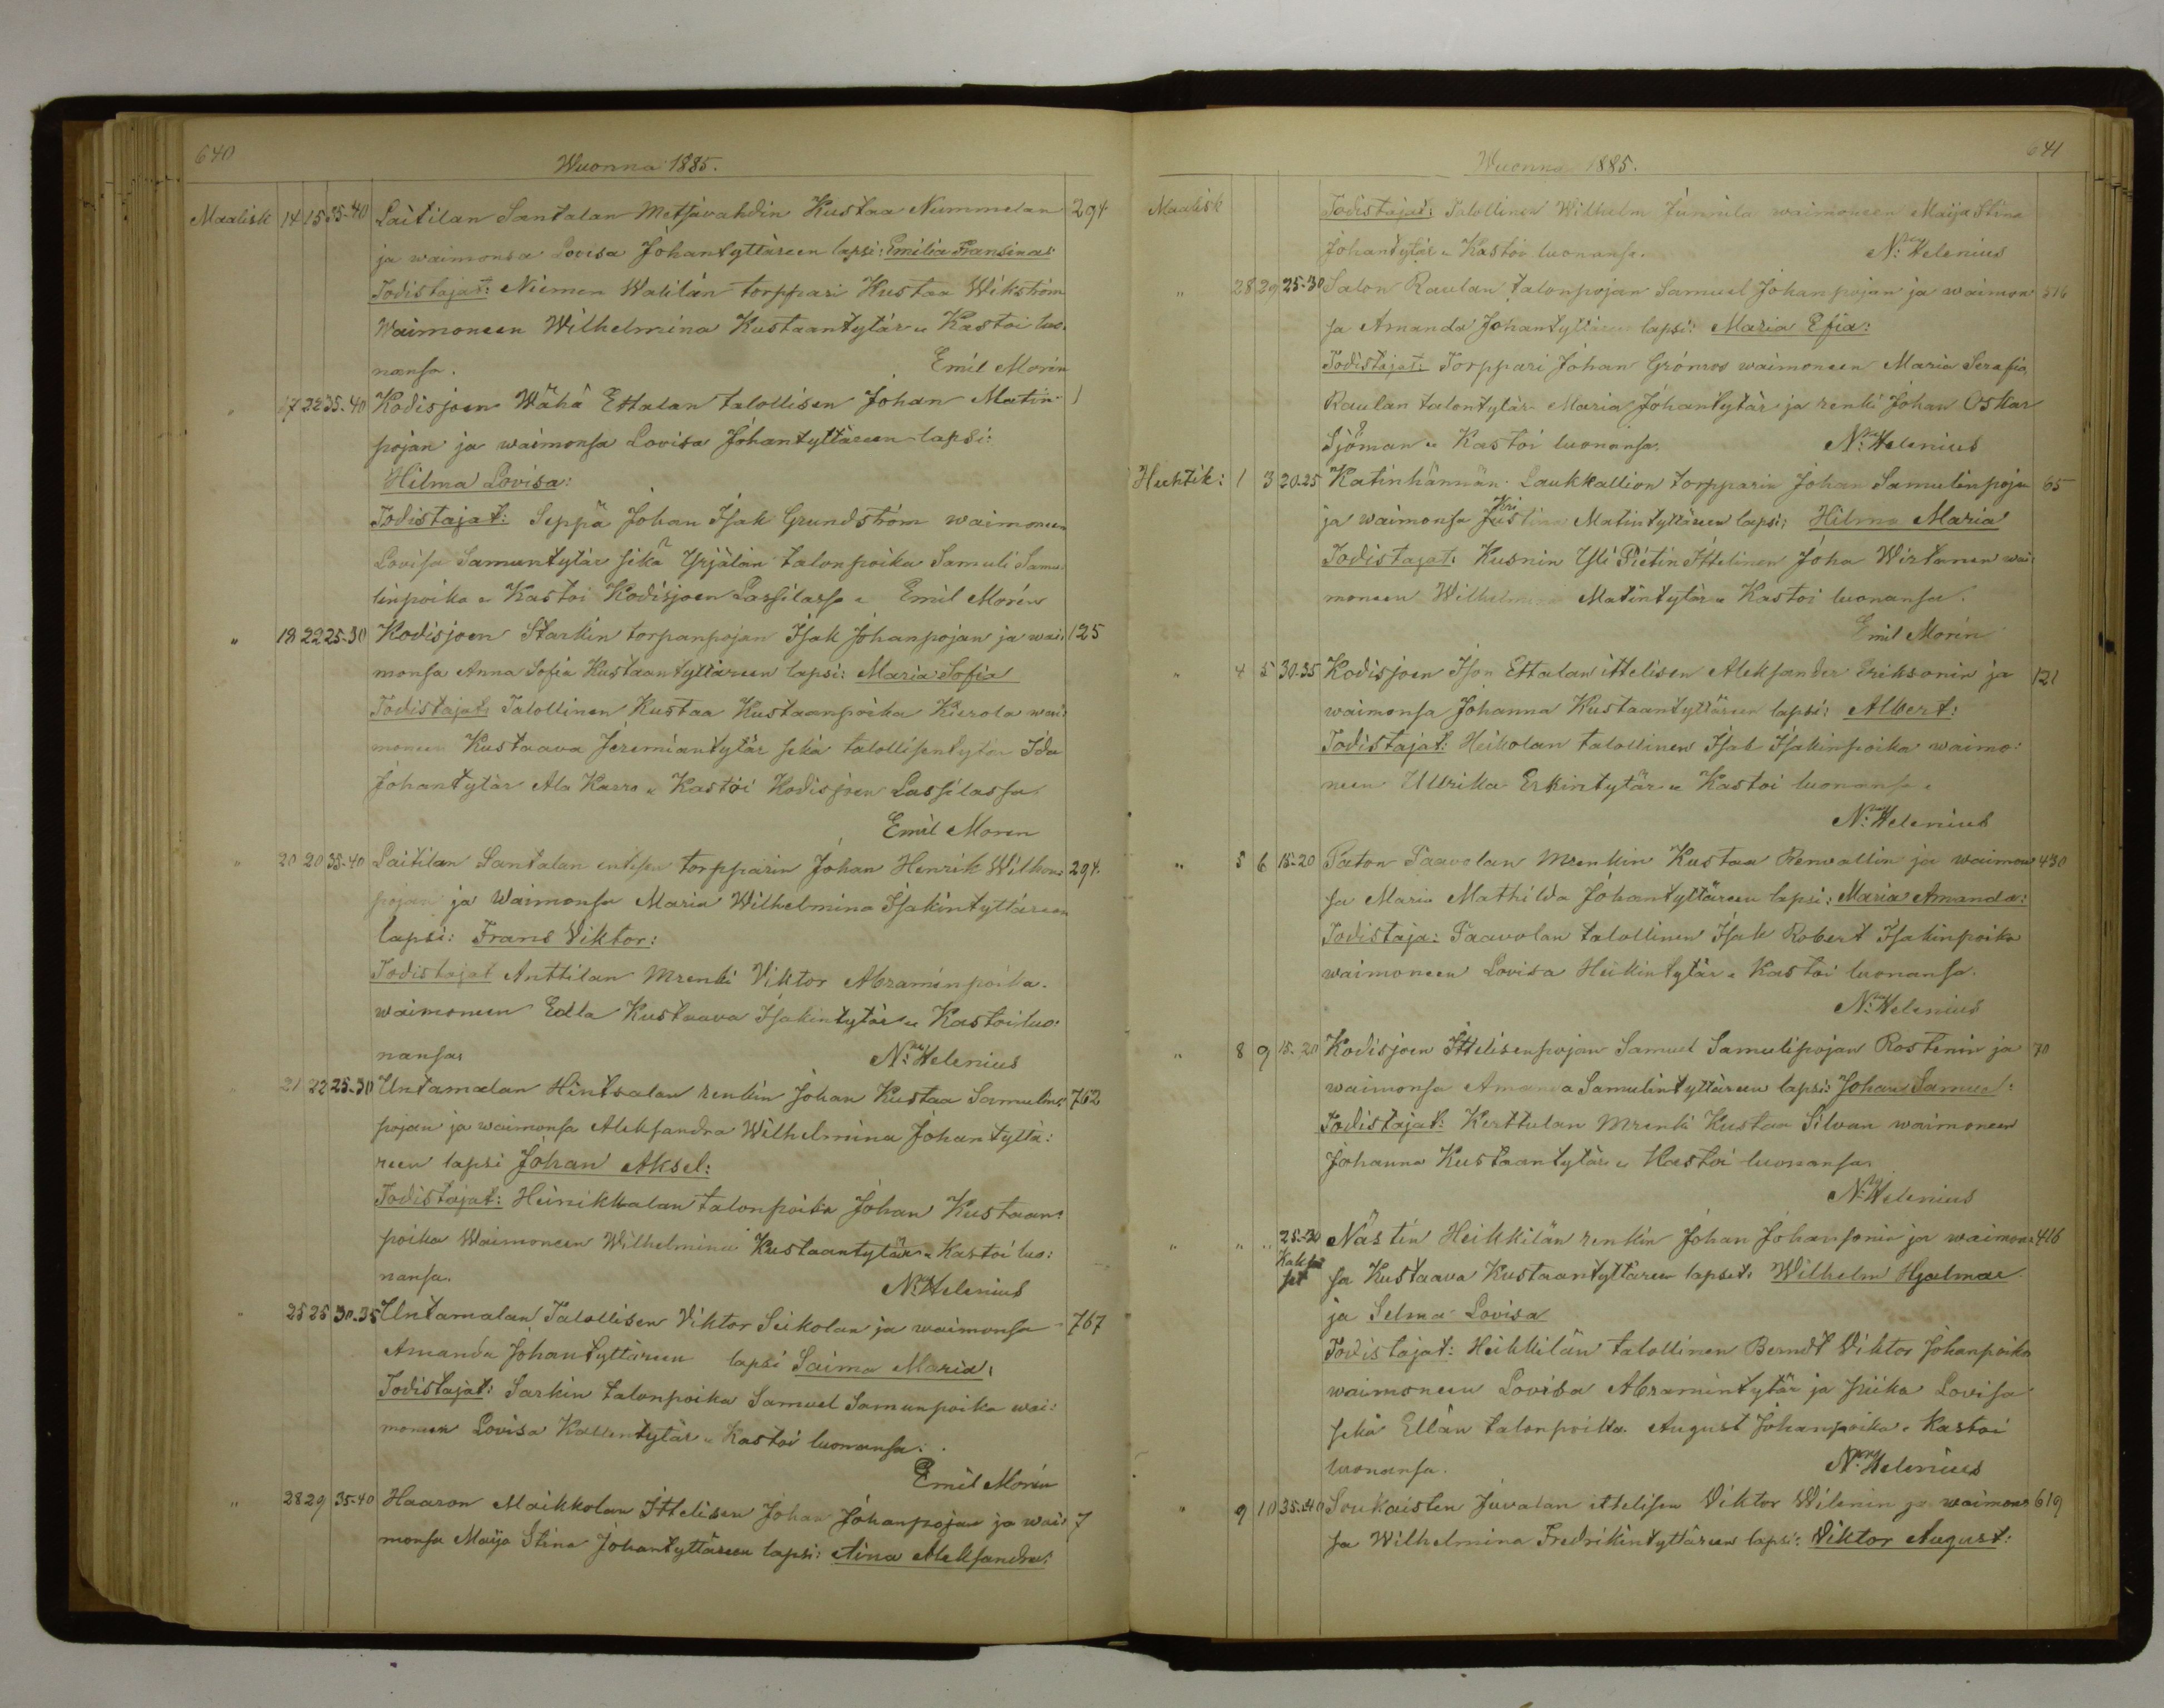 640
Wuonna 1885.
Maalisk 14 15 35-40 Laitilan Santalan Metsävahdin Kustaa Nummelan 294
ja waimonsa Lovisa Johantyttären lapsi: Emilia Fransina:
Todistajat: Niemen Walilan torppari Kustaa Wikström
Waimoneen Wilhelmina Kustaantytär „ Kastoi luo:
nansa. Emil Morén
„ 17 22 35-40 Kodisjoen Wähä Ettalan talollisen Johan Matin- 1
pojan ja waimonsa Lovisa Johantyttäreen lapsi:
Hilma Lovisa:
Todistajat: Seppä Johan Isak Grundström waimoneen
Lovisa Samuntytär sekä Yrjälän talonpoika Samuli Samu:
linpoika „ Kastoi Kodisjoen Lassilassa „ Emil Morén
„ 18 22 25-30 Kodisjoen Starkin torpanpojan Isak Johanpojan ja wai: 125
monsa Anna Sofia Kustaantyttäreen lapsi: Maria Sofia
Todistajat: Talollinen Kustaa Kustaanpoika Kierola wai:
moneen Kustaava Jeremiantytär sekä talollisentytär Ida
Johantytär Ala Karro „ Kastoi Kodisjoen Lassilassa.
Emil Moren
„ 20 20 35-40 Laitilan Santalan entisen torpparin Johan Henrik Wilhom: 294
pojan ja Waimonsa Maria Wilhelmina Isakintyttäreen
lapsi: Frans Viktor:
Todistajat Anttilan Mrenki Viktor Abraminpoika.
waimoneen Edla Kustaava Isakintytär „ Kastoi luo:
nansa, N: Helenius
„ 21 22 25-30 Untamalan Hintsalan renkin Johan Kustaa Samulin: 762
pojan ja waimonsa Aleksandra Wilhelmina Johantyttä:
reen lapsi Johan Aksel:
Todistajat: Heinikkalan talonpoika Johan Kustaan:
poika Waimoneen Wilhelmina Kustaantytär „ Kastoi luo:
nansa. N: Helenius
„ 25 25 30-35 Untamalan Talollisen Viktor Seikolan ja waimonsa 767
Amanda Johantyttäreen lapsi Saima Maria:
Todistajat: Sarkin talonpoika Samuel Samunpoika wai:
moneen Lovisa Kallentytär „ Kastoi luonansa.
Emil Morén
„ 28 29 35-40 Haaron Maikkolan Ittelisen Johan Johanpojan ja wai: 7
monsa Maija Stina Johantyttäreen lapsi: Aina Aleksandra:
641
Wuonna 1885.
Maalisk Todistajat: Talollinen Wilhelm Junnila waimoneen Maija Stina
Johantytär „ Kastoi luonansa. N: Helenius
„ 28 29 25-30 Salon Raulan talonpojan Samuel Johanpojan ja waimon 516
sa Amanda Johantyttären lapsi: Maria Efia:
Todistajat: Torppari Johan Grönros waimoneen Maria Serafia
Raulan talontytär Maria Johantytär ja renki Johan Oskar
Sjöman „ Kastoi luonansa. N: Helenius
Huhtik: 1 3 20-25 Katinhännän Laukkallion torpparin Johan Samulinpoja 65
ja waimonsa Justina Matintyttäreen lapsi: Hilma Maria
Todistajat: Kusnin Yli Pietin Ittelinen Joha Wirtanen wai:
moneen Wilhelmina Matintytär „ Kastoi luonansa.
Emil Morén
„ 4 5 30-35 Kodisjoen Ison Ettalan ittelisen Aleksander Eriksonin ja 121
waimonsa Johanna Kustaantyttäreen lapsi: Albert:
Todistajat: Heikolan talollinen Isak Isakinpoika waimo:
neen Ullrika Erkintytär „ Kastoi luonansa.
N: Helenius
„ 5 6 15-20 Paaton Paavolan Mrenkin Kustaa Renvallin ja waimon 430
sa Maria Mathilda Johantyttäreen lapsi: Maria Amanda:
Todistaja: Paavolan talollinen Isak Robert Isakinpoika
waimoneen Lovisa Heikintytär „ Kastoi luonansa.
N: Helenius
„ 8 9 15-20 Kodisjoen Ittelisenpojan Samuel Samulipojan Rostenin ja 70
waimonsa Amanda Samulintyttäreen lapsi: Johan Samuel:
Todistajat: Kerttulan Mrenki Kustaa Silvan waimoneen
Johanna Kustaantytär „ Kastoi luonansa
N: Helenius
„ „ „ 25-30 Nästin Heikkilän renkin Johan Johansonin ja waimon: 416
Kaksoset sa Kustaava Kustaantyttären lapset: Wilhelm Hjalmar
ja Selma Lovisa
Todistajat: Heikkilän talollinen Berndt Viktor Johanpoika
waimoneen Lovisa Abramintytär ja piika Lovisa
sekä Ellän talonpoika August Johanpoika „ Kastoi
luonansa. N: Helenius
„ 9 10 35-40 Soukaisten Juvalan ittelisen Viktor Wilenin ja waimon: 619
sa Wilhelmina Fredrikintyttäreen lapsi: Viktor August: